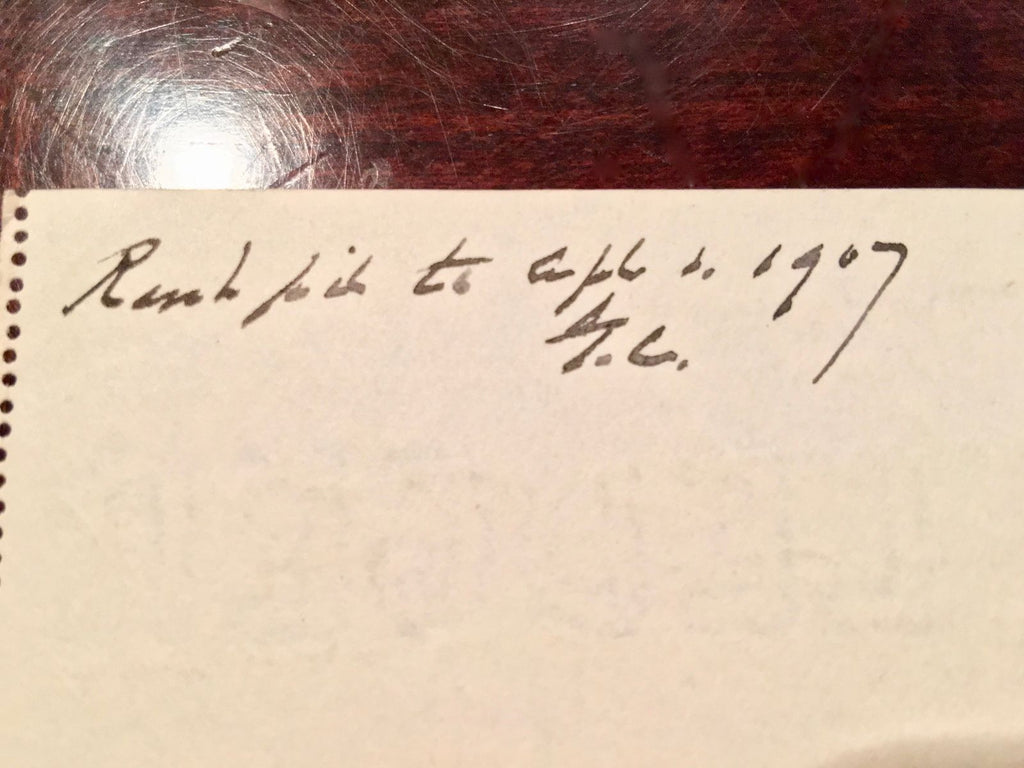 Rent paid to Apl 1. 1907
F.C.